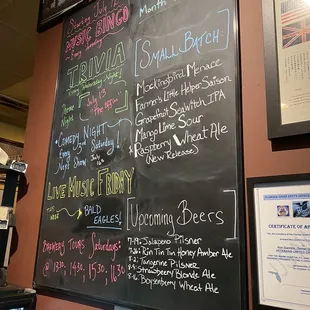 Starting July
MUSIC BINGO
Every Sunday!
Month
TRIVIA
Every Wednesday Night
Theme
Night
July 13
The
Small Batch
Mockingbird Menace
Farmer's Little Helper Saison
Grapefruit SeaWitch IPA
Mango Lime Sour
Raspberry Wheat Ale
(New Release)
Comedy Night
Every 3rd Saturday!
Next Show: July
16
Live Music Friday
BALD
EAGLES!
Upcoming Beers
7-19: Jalapeno Pilsner
Rin Tin Tin Honey Amber Ale
8-2: Tangerine Pilsner
Strawberry Blonde Ale
Boysenberry Wheat Ale
Brewery Tours Saturdays:
@ 13:30, 14:30, 15:30, 16:30
CERTIFICATE OF A